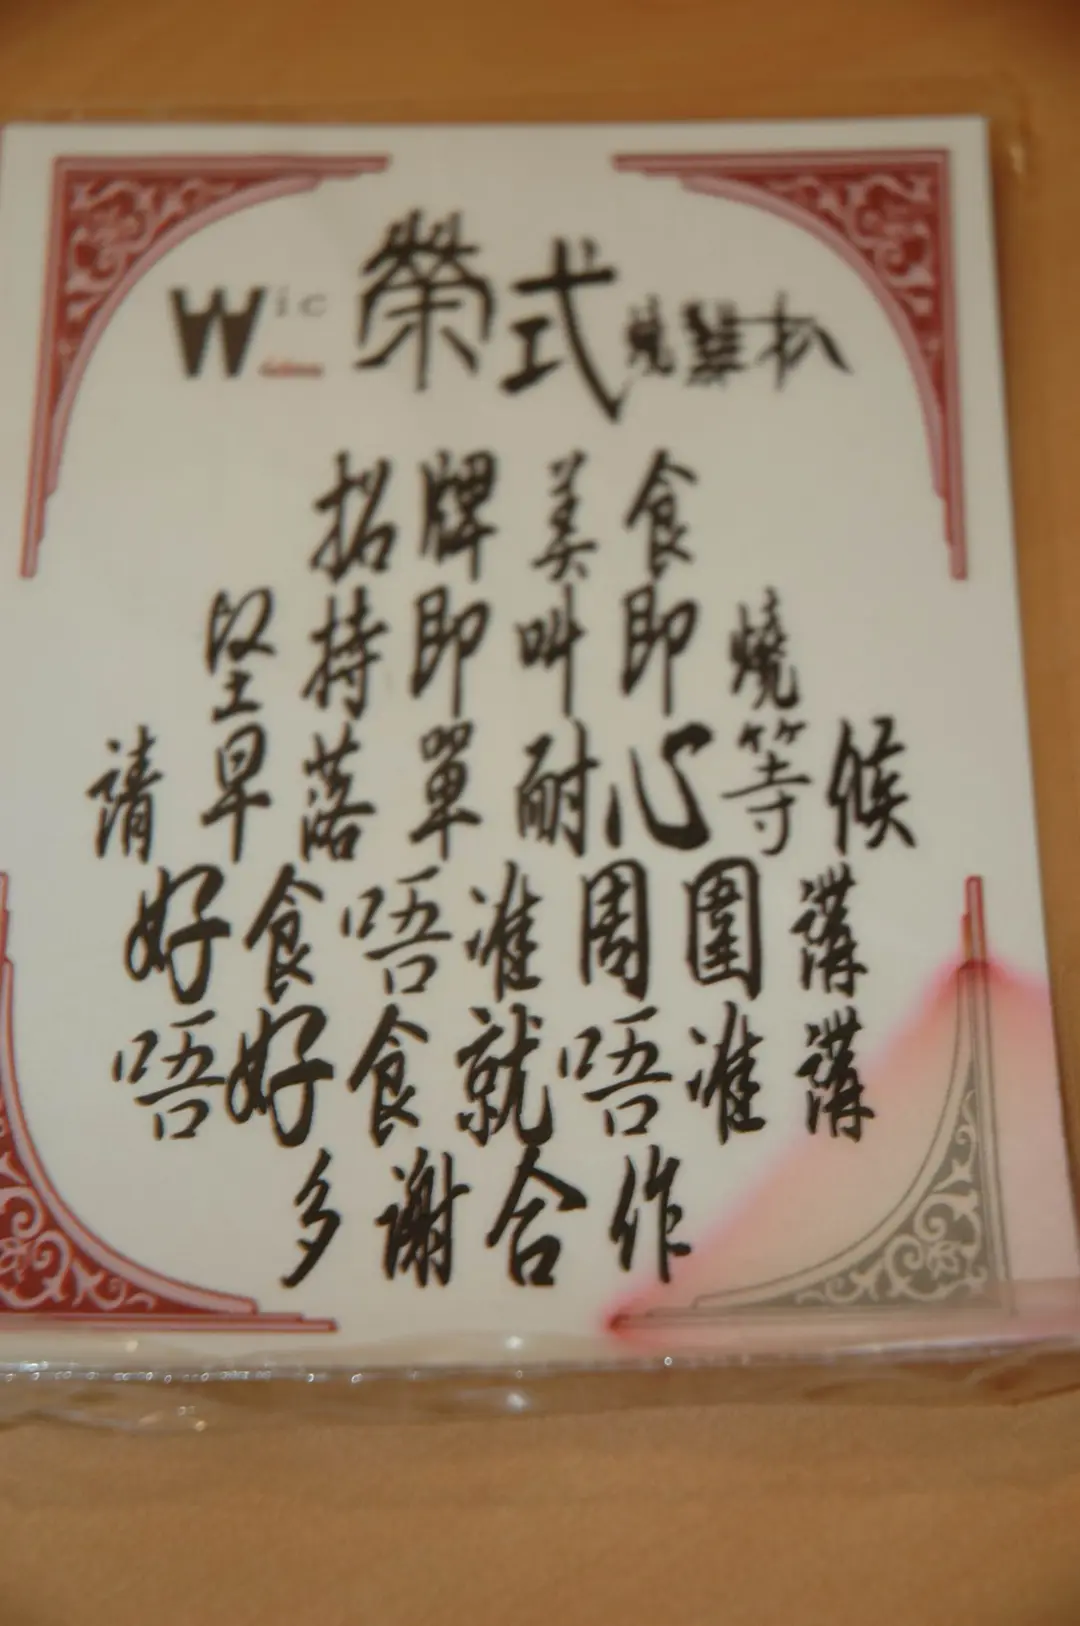 Wic 榮式燒鷄扒
招牌美食
堅持即叫即燒
請早落單耐心等候
好食唔准周圍講
唔好食就唔准講
多謝合作